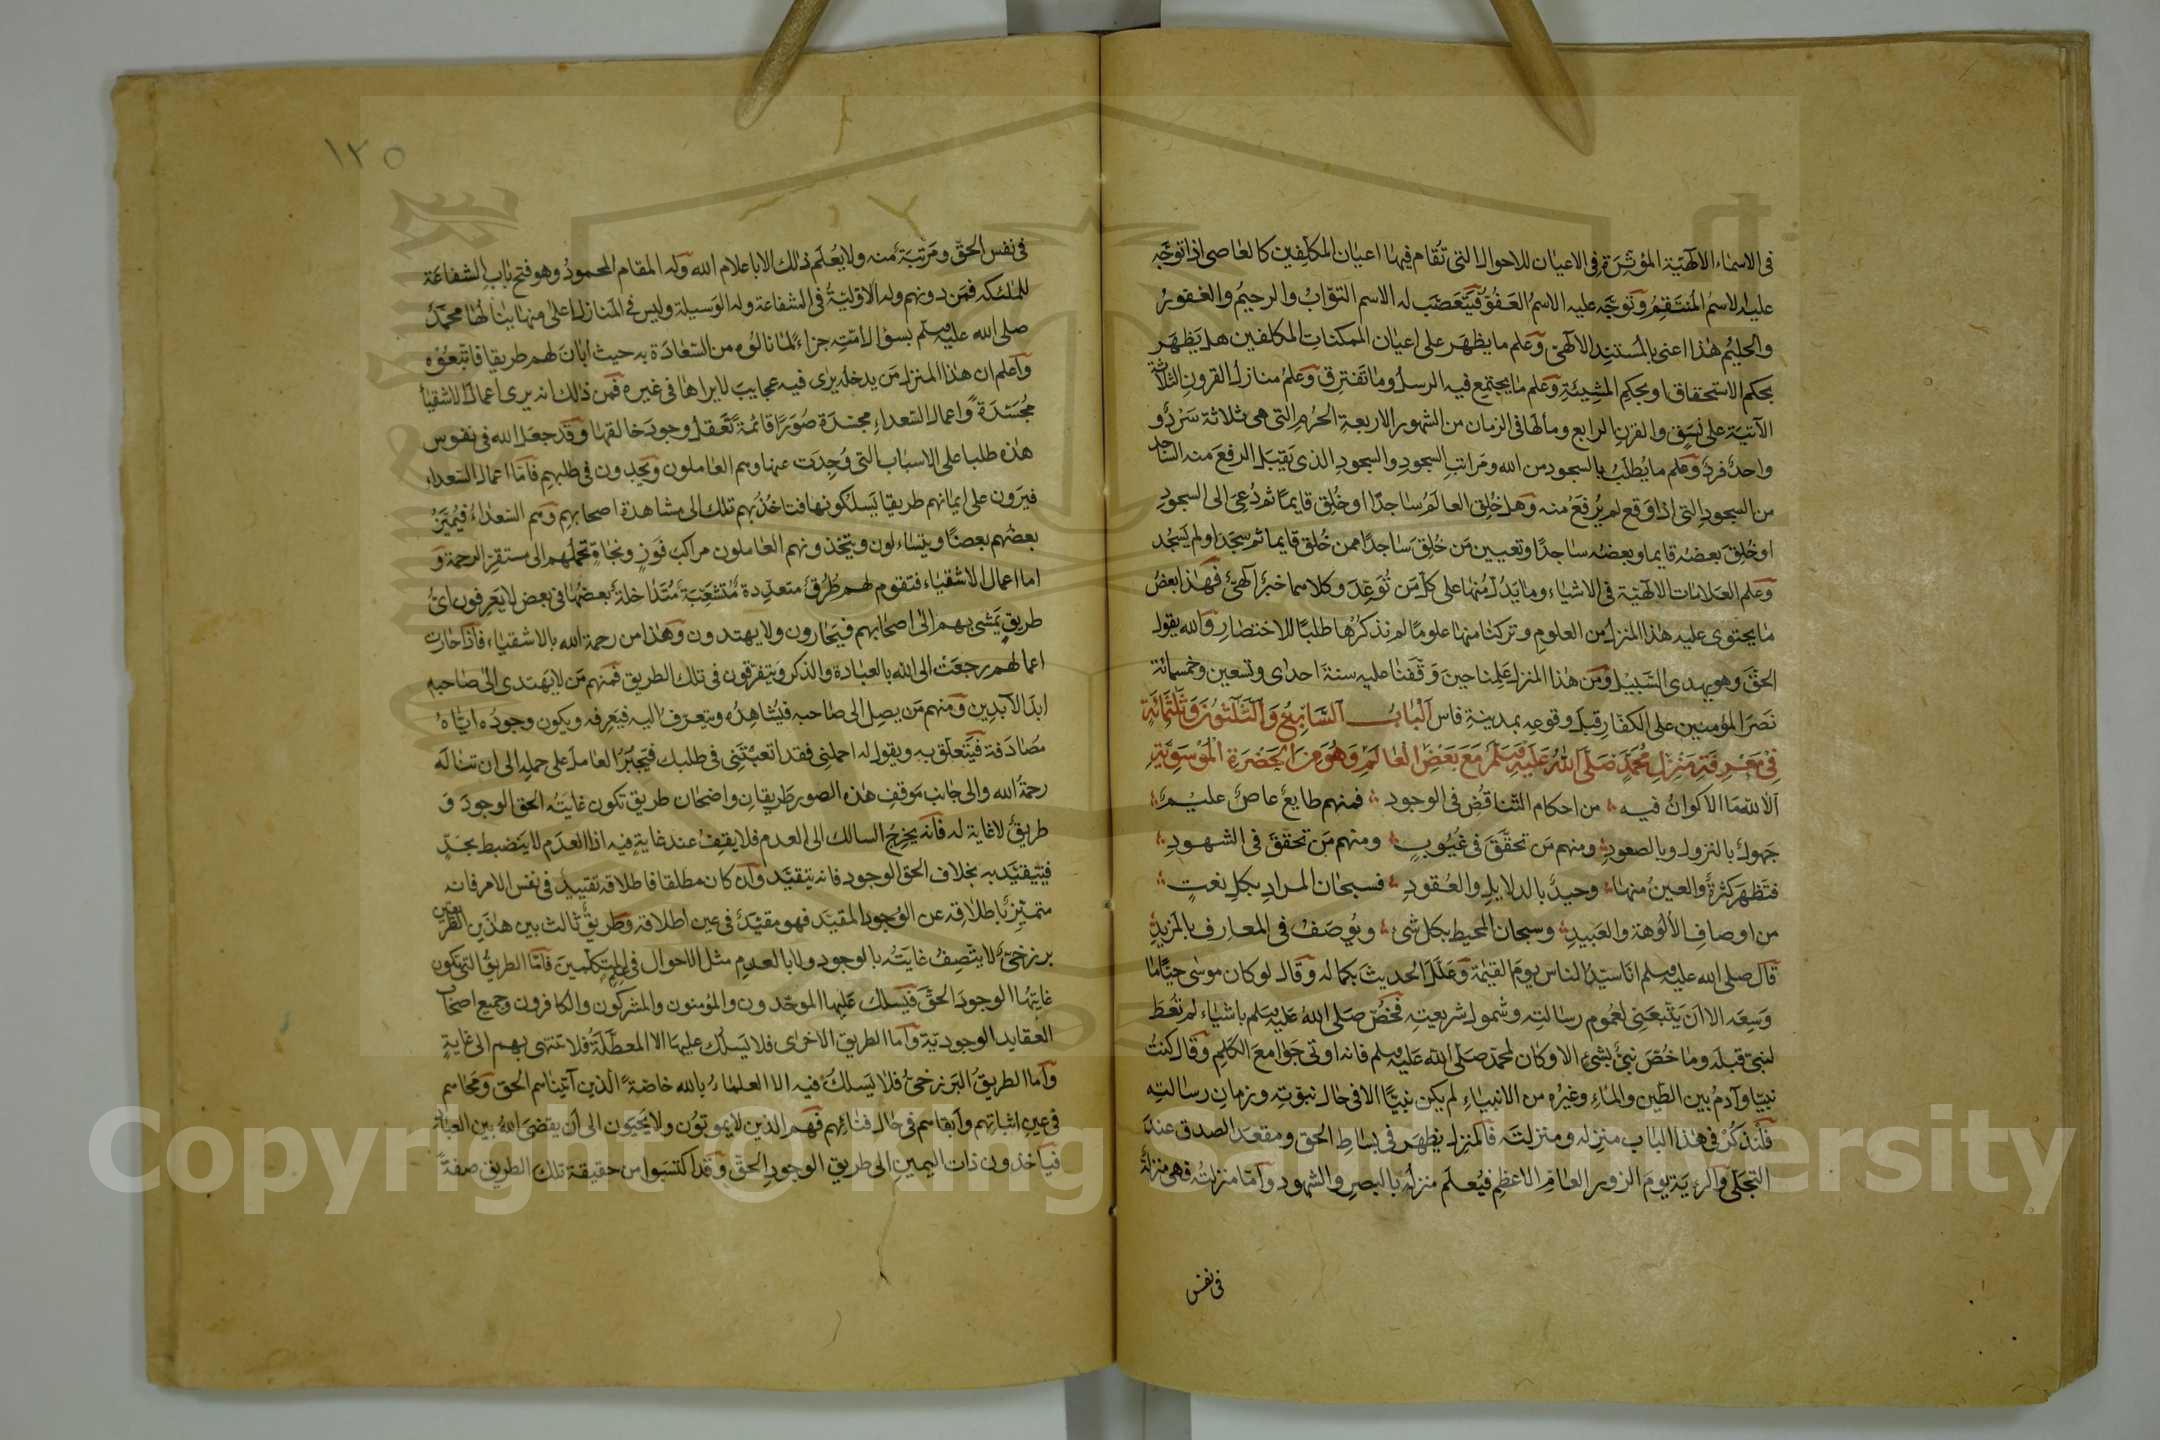 في الاسماء الالهية المؤثرة في الاعيان للاحوال التي تقام فيها اعيان المكلفين كالعاصي اذا توجه
عليه الاسم المنتقم وتوجه عليه الاسم العفو فيتعصب له الاسم التواب والرحيم والغفور
والحليم هذا اعني بالمستند الالهي وعلم ما يظهر على اعيان الممكنات المكلفين هل يظهر
بحكم الاستحقاق او بحكم المشيئة وعلم ما يجتمع فيه الرسل وما تفترق وعلم منازل القرون الثلاثة
الاتية على نسق والقرن الرابع وما لها في الزمان من الشهور الاربعة الحرم التي هي ثلاثة سرد و
واحد فرد وعلم ما يطلب بالسجود من الله ومراتب السجود والسجود الذي يقبل الرفع منه الساجد
من السجود التي اذا وقع لم يرفع منه وهل خلق العالم ساجدا او خلق قايما ثم دعي الى السجود
او خلق بعضه قايما وبعضه ساجدا وتعيين من خلق ساجدا ممن خلق قايما ثم سجد او لم يسجد
وعلم العلامات الالهية في الاشياء وما يدل منها على كل من توعد وكلاسما خبر الهي فهذا بعض
ما يحتوي عليه هذا المنزل من العلوم وتركنا منها علوما لم نذكرها طلبا للاختصار والله يقول
الحق وهو يهدي السبيل ومن هذا المنزل علمنا حين وقفنا عليه سنة احدى وتسعين وخمسمائة
نصر المؤمنين على الكفار قبل وقوعه بمدينة فاس الباب السابع والثلثون وثلثمائة
في معرفة منزل محمد صلى الله عليه وسلم مع بعض العالم وهو من الحضرة الموسوية
الا لله ما الاكوان فيه من احكام التناقض في الوجود فمنهم طايع عاص عليم
جهول بالنزول وبالصعود ومنهم من تحقق في غيوب ومنهم من تحقق في الشهود
فتظهر كثرة والعين منها وحيد بالدلايل والعقود فسبحان المراد بكل نعت
من اوصاف الالوهة والعبيد وسبحان المحيط بكل شئ ويوصف في المعارف بالمزيد
قال صلى الله عليه وسلم انا سيد الناس يوم القيمة وعلل الحديث بكماله وقال لو كان موسى حيا ما
وسعه الا ان يتبعني لعموم رسالته وشمول شريعته فخص صلى الله عليه وسلم باشياء لم تعط
لنبي قبله وما خص نبي بشئ الا وكان لمحمد صلى الله عليه وسلم فانه اوتي جوامع الكلم وقال كنت
نبيا وآدم بين الطين والماء وغيره من الانبياء لم يكن نبيا الا في حال نبوته وزمان رسالته
فلنذكر في هذا الباب منزله ومنزلته فالمنزل يظهر في بساط الحق ومقعد الصدق عند
التجلي والرؤية يوم الزور العام الاعظم فيعلم منزله بالبصر والشهود واما منزلته فهي منزلة
في نفس
١٢٥
في نفس الحق ومرتبة منه ولا يعلم ذلك الا باعلام الله وله المقام المحمود وهو فتح باب الشفاعة
للملئكه فمن دونهم وله الاولية في الشفاعة وله الوسيلة وليس في المنازل اعلى منها ينالها محمد
صلى الله عليه وسلم بسؤال امته جزاء لما نالوه من السعادة به حيث ابان لهم طريقا فاتبعوه
واعلم ان هذا المنزل من يدخله يرى فيه عجايب لا يراها في غيره فمن ذلك انه يرى اعمال الاشقياء
مجسدة واعمال السعداء مجسدة صورا قائمة تعقل وجود خالقها وقد جعل الله في نفوس
هذه طلبا على الاسباب التي وجدت عنها وهم العاملون ويجدون في طلبهم فاما اعمال السعداء
فيرون على ايمانهم طريقا يسلكونها فتاخذ بهم تلك الى مشاهدة اصحابهم وهم السعداء فيميز
بعضهم بعضا ويتساءلون ويتخذونهم العاملون مراكب فوز ونجاة تحملهم الى مستقر الرحمة و
اما اعمال الاشقياء فتقوم لهم طرق متعددة متشعبة متداخلة بعضها في بعض لا يعرفون اي
طريق يمشي بهم الى اصحابهم فيحارون ولا يهتدون وهذا من رحمة الله بالاشقياء فاذا حارت
اعمالهم رجعت الى الله بالعبادة والذكر ويتفرقون في تلك الطريق فمنهم من لا يهتدي الى صاحبه
ابد الآبدين ومنهم من يصل الى صاحبه فيشاهده ويتعرف اليه فيعرفه ويكون وجوده اياه
مصادفة فيتعلق به ويقول له احملني فقد اتعبتني في طلبك فيجبر العامل على حمله الى ان تناله
رحمة الله والى جانب موقف هذه الصور طريقان واضحان طريق تكون غايته الحق الوجود و
طريق لا غاية له فانه يخرج السالك الى العدم فلا يقف عند غاية فيه اذ العدم لا ينضبط بحد
فيتقيد به بخلاف الحق الوجود فانه يتقيد وان كان مطلقا فاطلاقه تقييد في نفس الامر فانه
متميز باطلاقه عن الوجود المقيد فهو مقيد في عين اطلاقه وطريق ثالث بين هذين الطريقين
برزخي لا يتصف غايته بالوجود ولا بالعدم مثل الاحوال في علم المتكلمين فاما الطريق التي تكون
غايتها الوجود الحق فيسلك عليها الموحدون والمؤمنون والمشركون والكافرون وجميع اصحاب
العقايد الوجودية واما الطريق الاخرى فلا يسلك عليها الا المعطلة فلا تنتهي بهم الى غاية
واما الطريق البرزخي فلا يسلك فيه الا العلماء بالله خاصة الذين اثبتهم الحق ومحاهم
في عين اثباتهم وابقاهم في حال فنائهم فهم الذين لا يموتون ولا يحيون الى ان يقضي الله بين العباد
فياخذون ذات اليمين الى طريق الوجود الحق وقد اكتسبوا من حقيقة تلك الطريق صفة
Copyright © King Saud University